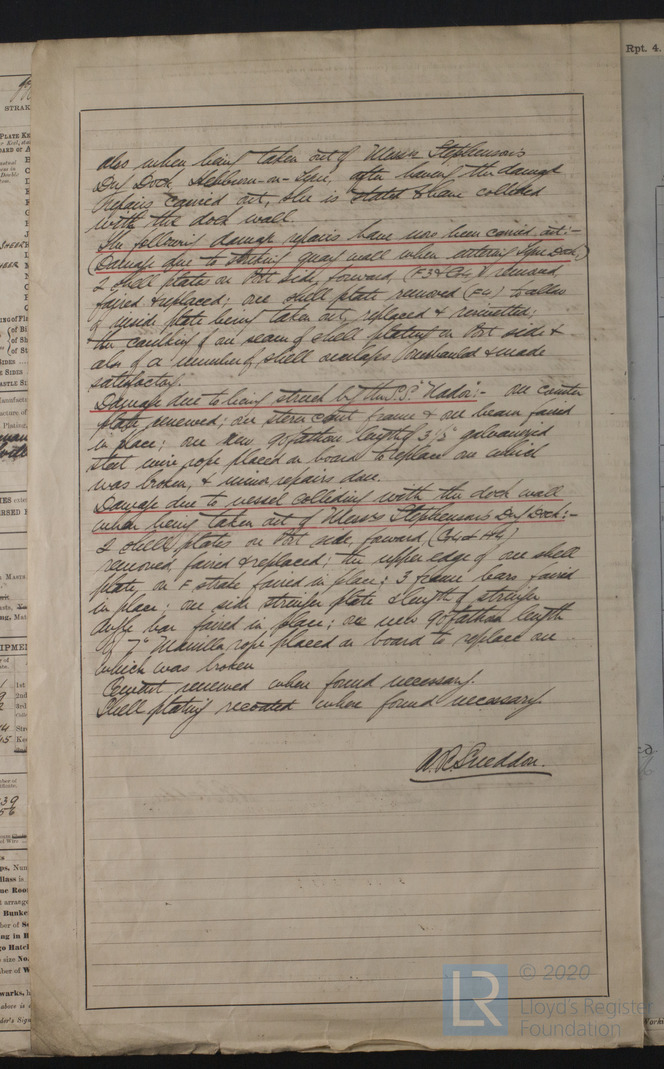 also when being taken out of Messrs Stephenson's
Dry Dock, Hebburn-on-Tyne, after having the damage
repairs carried out, she is stated to have collided
with the dock wall
The following damage repairs have now been carried out:-
(Damage due to striking quay wall when entering Tyne Dock)
2 shell plates on Port side, forward, (F3 & G4) removed,
faired & replaced; one shell plate removed (F4) to allow
of inside plate being taken out, replaced & rerivetted;
the caulking of one seam of shell plating on Port side &
also of a number of shell overlaps overhauled & made
satisfactory.
Damage due to being struck by the S.S. "Nada":- one counter
plate renewed; one stern frame & one beam faired
in place; one new 90 fathom length of 3½" galvanized
steel wire rope placed on board to replace one which
was broken, & minor repairs done.
Damage due to vessel colliding with the dock wall
when being taken out of Messrs Stephenson's Dry Dock:-
2 shell plates on Port side, forward, (G4 & H4)
removed, faired & replaced; the upper edge of one shell
plate on F strake faired in place; 3 frame bars faired
in place; one side stringer plate & length of stringer
angle bar faired in place; one new 90 fathom length
of 7" Manilla rope placed on board to replace one
which was broken
Cement renewed where found necessary.
Shell plating recoated where found necessary.
A.R. Sneddon.
Rpt. 4.
STRAK
PLATE KE
MES exte
Masts.
1st
2nd
3rd
LR © 2020
Lloyd's Register
Foundation